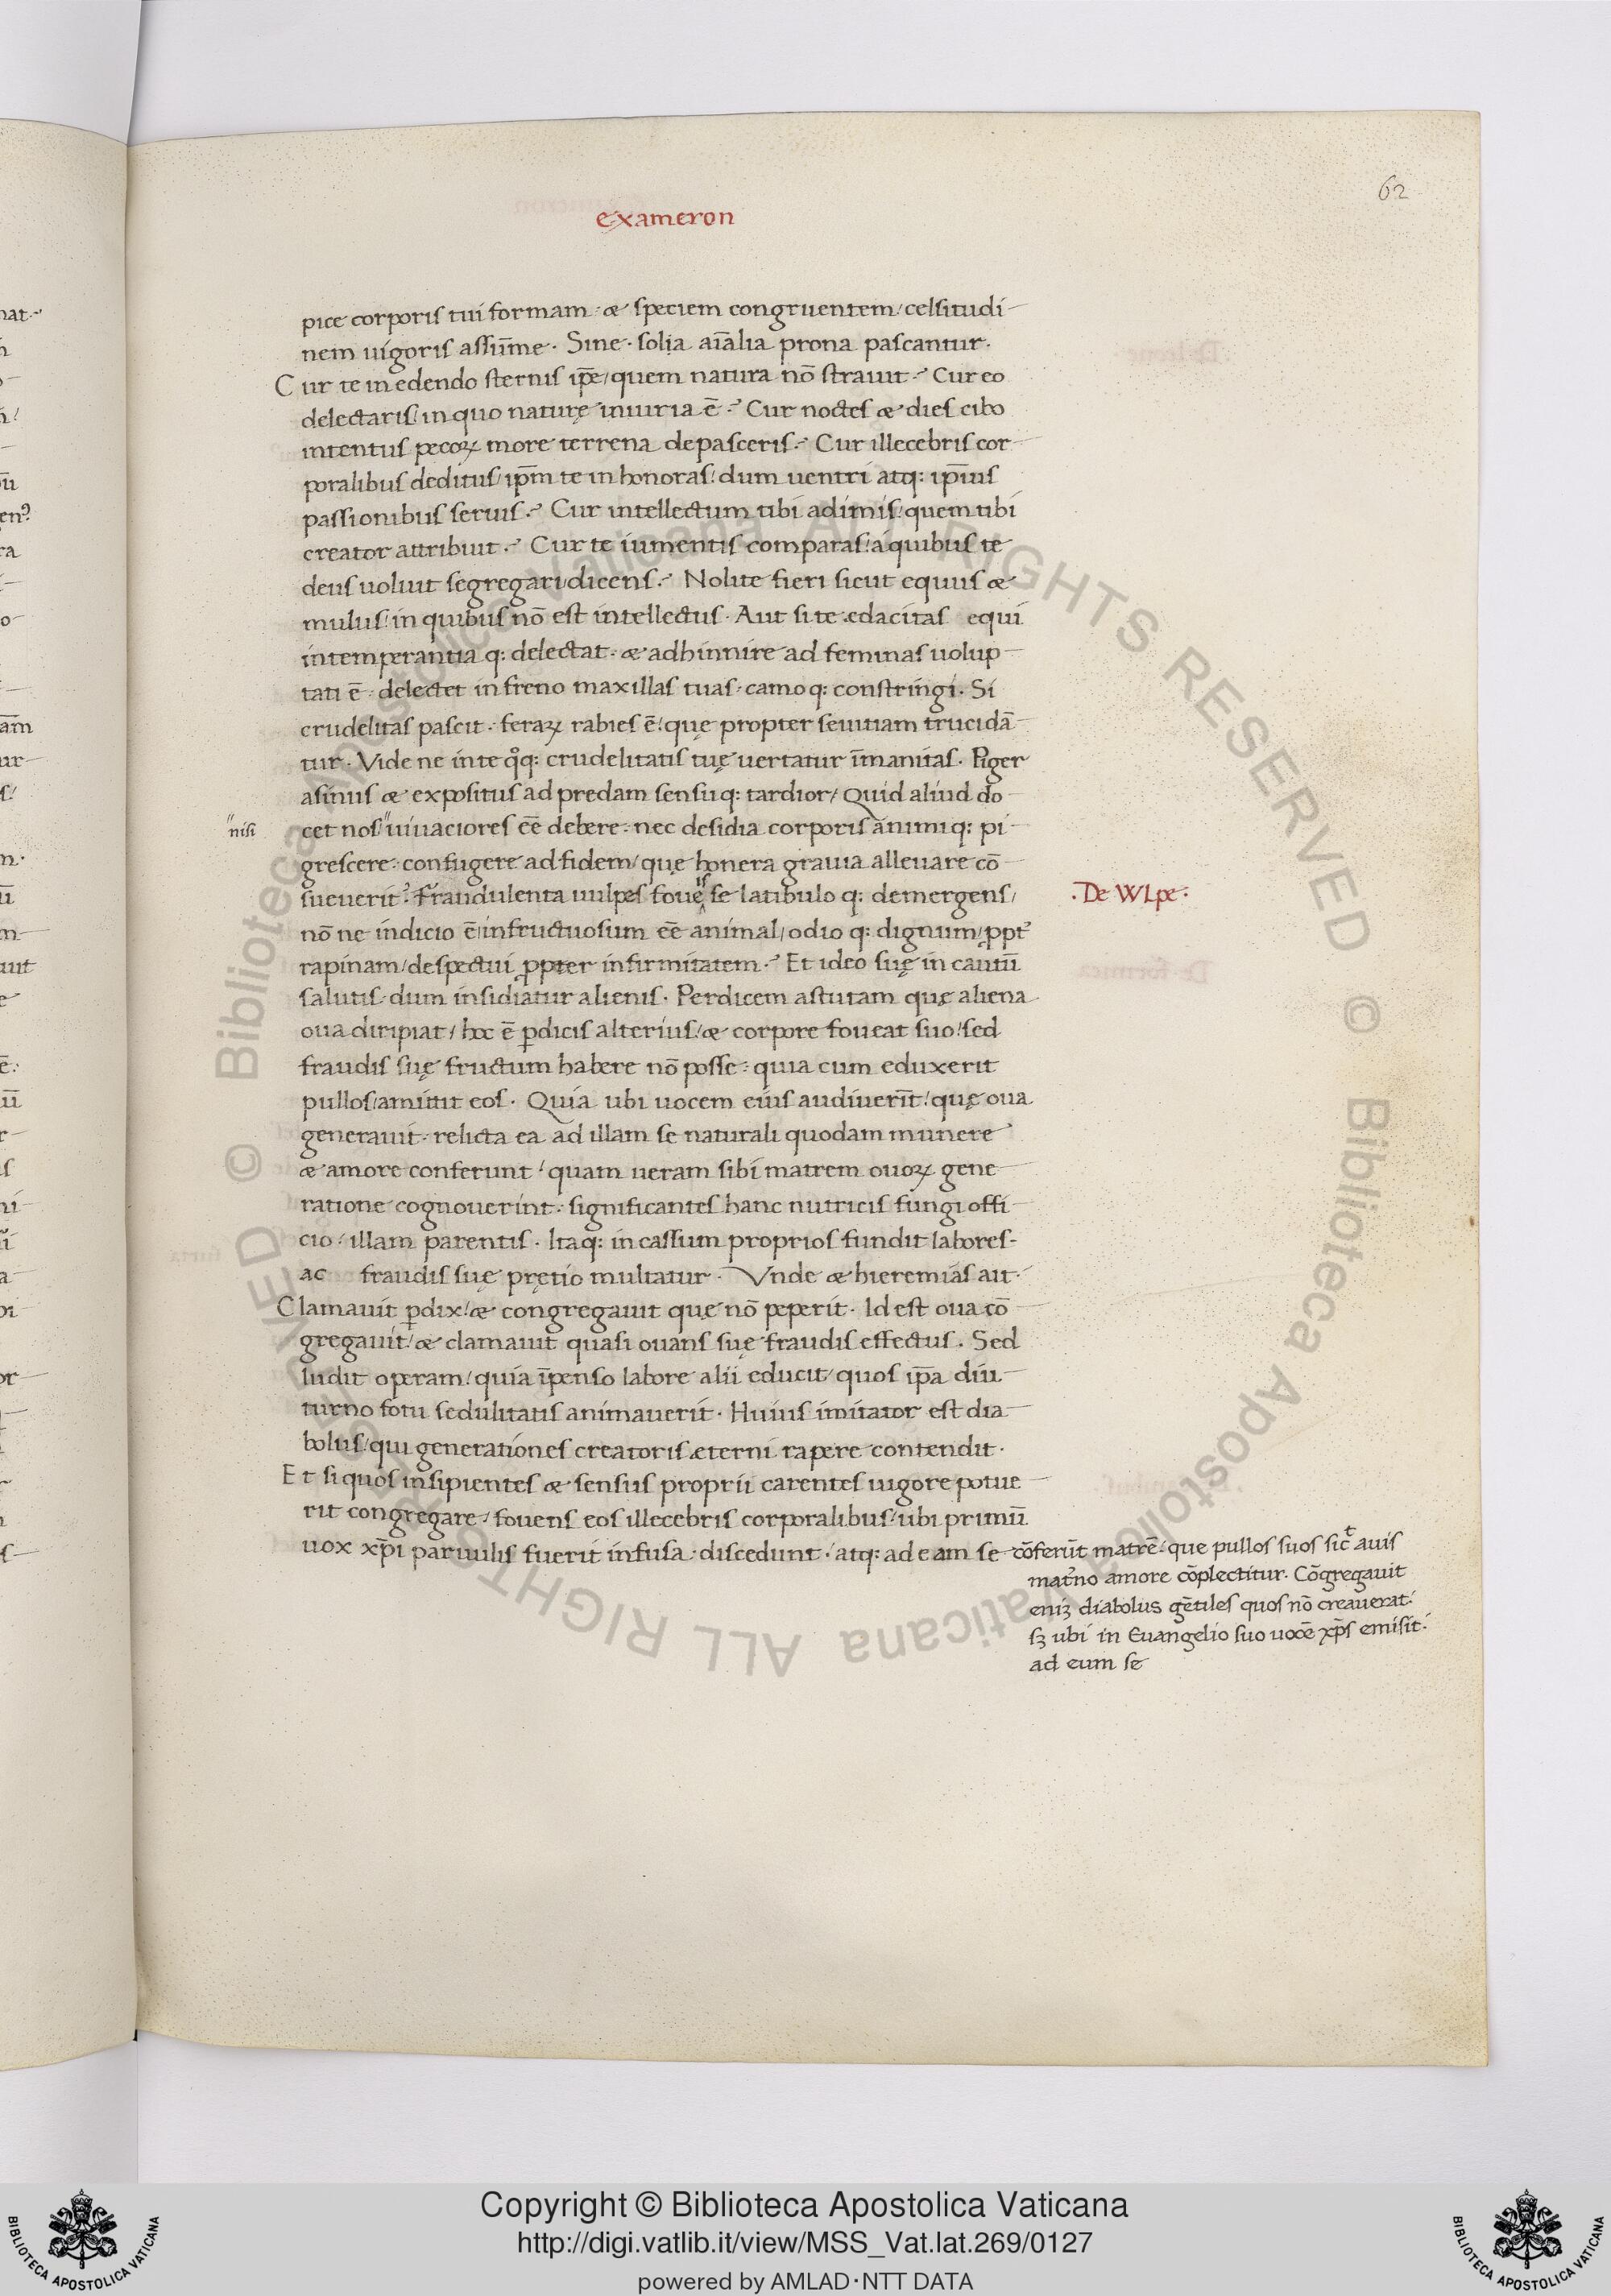 62
exameron
pice corporis tui formam · & speciem congruentem / celsitudi-
nem uigoris assūme · Sine · solia aīalia prona pascantur ·
Cur te in edendo sternis ip̄e / quem natura nō strauit ·? Cur eo
delectaris / in quo naturę iniuria ē ·? Cur noctes & dies cibo
intentus pecoꝝ more terrena depasceris ·? Cur illecebris cor-
poralibus deditus / ip̄m te in honoras / dum uentri atq: ip̄ius
passionibus seruis ·? Cur intellectum tibi adimis / quem tibi
creator attribuit ·? Cur te iumentis comparas / a quibus te
deus uoluit segregari / dicens ·? Nolite fieri sicut equus &
mulus / in quibus nō est intellectus · Aut si te edacitas equi
intemperantia q: delectat · & adhinnire ad feminas uolup-
tati ē · delectet in freno maxillas tuas · camo q: constringi · Si
crudelitas pascit · feraꝝ rabies ē / quę propter seuitiam trucidā-
tur · Vide ne in te qͦq: crudelitatis tuę uertatur īmanitas · Piger
asinus & expositus ad predam sensu q: tardior / Quid aliud do-
nisi
cet nos " uiuaciores eē debere · nec desidia corporis animi q: pi-
grescere · confugere ad fidem / quę honera grauia alleuare cō-
sueuerit? Fraudulenta uulpes foueis se latibulo q: demergens /
· De WLpe ·
nō ne indicio ē / infructuosum eē animal / odio q: dignum / ꝓpt᷒
rapinam / despectui ꝓpter infirmitatem ·? Et ideo suę in cautū
salutis · dum insidiatur alienis · Perdicem astutam quę aliena
oua diripiat / hoc ē ꝑdicis alterius / & corpore foueat suo / sed
fraudis suę fructum habere nō posse · quia cum eduxerit
pullos / amittit eos · Quia ubi uocem eius audiuerīt / quę oua
generauit · relicta ea ad illam se naturali quodam munere
& amore conferunt / quam ueram sibi matrem ouoꝝ gene-
ratione cognouerint · significantes hanc nutricis fungi offi-
cio / illam parentis · Itaq: in cassum proprios fundit labores-
ac fraudis suę pretio multatur · Vnde & hieremias ait ·
Clamauit ꝑdix / & congregauit quę nō peperit · Id est oua cō-
gregauit / & clamauit quasi ouans suę fraudis effectus · Sed
ludit operam / quia īpenso labore alii educit / quos ip̄a diu-
turno fotu sedulitatis animauerit · Huius imitator est dia-
bolus / qui generationes creatoris æterni rapere contendit ·
Et si quos insipientes & sensus proprii carentes uigore potue-
rit congregare / fouens eos illecebris corporalibus / ubi primū
uox xp̄i paruulis fuerit infusa · discedunt · atq: ad eam se cōferūt matrē / que pullos suos sic̄ auis
mat᷒no amore cōplectitur · Cōgregauit
eniꝫ diabolus gētiles quos nō creauerat ·
sꝫ ubi in Euangelio suo uocē xp̄s emisit ·
ad eum se
Copyright © Biblioteca Apostolica Vaticana
http://digi.vatlib.it/view/MSS_Vat.lat.269/0127
powered by AMLAD·NTT DATA
BIBLIOTECA APOSTOLICA VATICANA
BIBLIOTECA APOSTOLICA VATICANA
© Biblioteca Apostolica Vaticana ALL RIGHTS RESERVED © Biblioteca Apostolica Vaticana ALL RIGHTS RESERVED